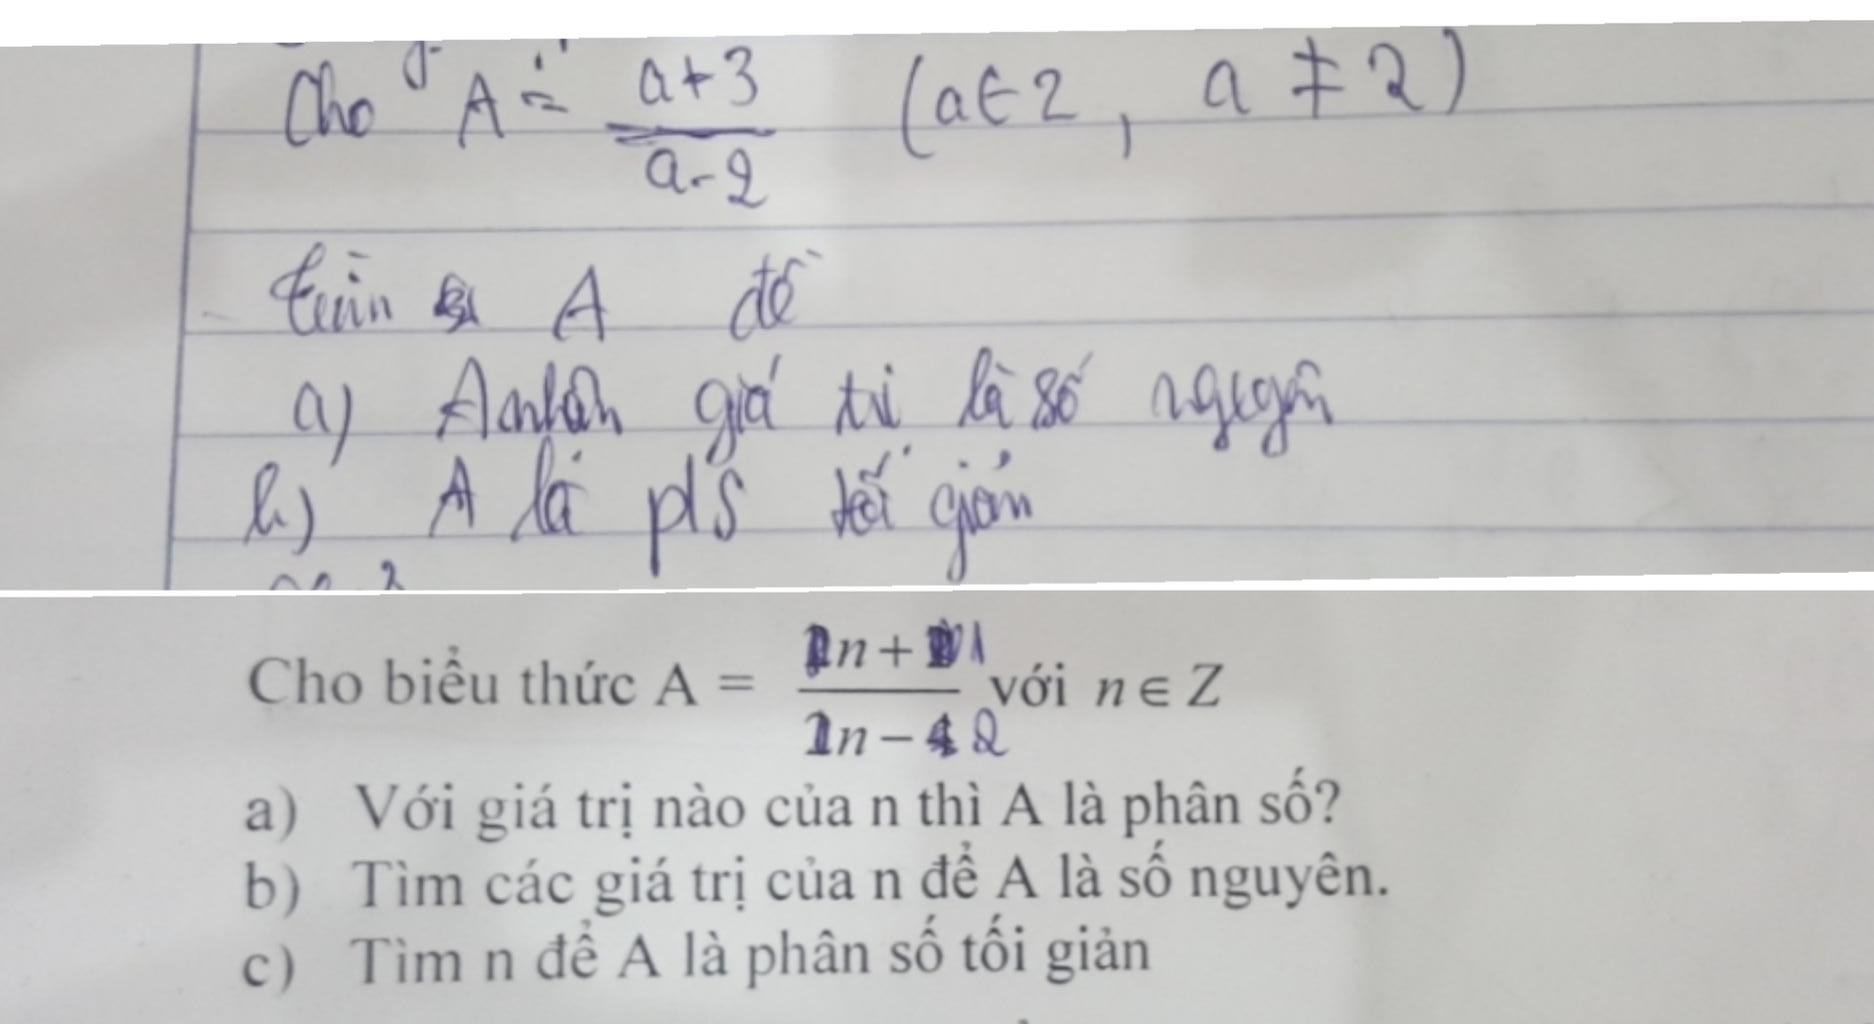 Cho A = a+3 / a-2 (a∈Z, a ≠ 2)
tìm A để
a) A nhận giá trị là số nguyên
b) A là p/s tối giản
Cho biểu thức A = n + 1 / n − 2 với n ∈ Z
a) Với giá trị nào của n thì A là phân số?
b) Tìm các giá trị của n để A là số nguyên.
c) Tìm n để A là phân số tối giản